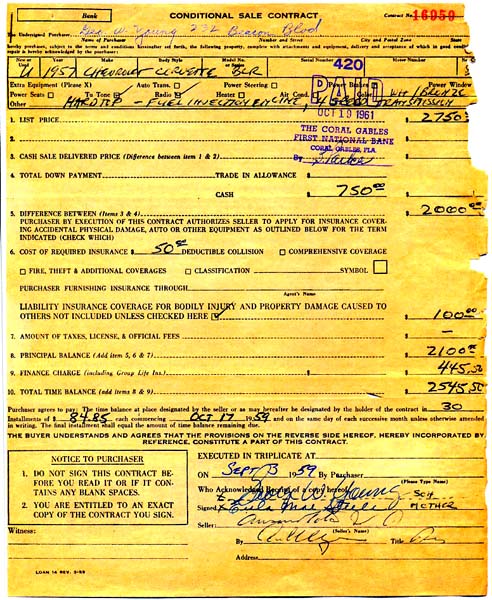 Bank
CONDITIONAL SALE CONTRACT
Contract No. 16959
The Undersigned Purchaser, Geo. W. Young 232 Beacon Blvd
Name of Purchaser Number and Street City and Postal Zone State
hereby purchase, subject to the terms and conditions hereinafter set forth, the following property, complete with attachments and equipment, delivery and acceptance of which in good condition and repair is hereby acknowledged by the purchaser:
New or Used Year Make Body Style Model No. or Series Serial Number Motor Number
U 1957 CHEVROLET CORVETTE
420
Extra Equipment (Place X) Auto Trans. Power Steering Power Brakes Power Window
Power Seats Tu Tone Radio Heater Air Cond.
Other HARDTOP - FUEL INJECTION ENGINE, 4 SPEED TRANSMISSION
PAID
OCT 19 1961
THE CORAL GABLES
FIRST NATIONAL BANK
CORAL GABLES, FLA.
By
1. LIST PRICE $ 2750
2.
3. CASH SALE DELIVERED PRICE (Difference between item 1 & 2) $
4. TOTAL DOWN PAYMENT TRADE IN ALLOWANCE $
CASH $ 750.00
5. DIFFERENCE BETWEEN (Items 3 & 4) $ 2000.00
PURCHASER BY EXECUTION OF THIS CONTRACT AUTHORIZES SELLER TO APPLY FOR INSURANCE COVERING ACCIDENTAL PHYSICAL DAMAGE, AUTO OR OTHER EQUIPMENT AS OUTLINED BELOW FOR THE TERM INDICATED (CHECK WHICH)
6. COST OF REQUIRED INSURANCE $ 50.00 DEDUCTIBLE COLLISION COMPREHENSIVE COVERAGE
FIRE, THEFT & ADDITIONAL COVERAGES CLASSIFICATION SYMBOL
PURCHASER FURNISHING INSURANCE THROUGH
Agent's Name
LIABILITY INSURANCE COVERAGE FOR BODILY INJURY AND PROPERTY DAMAGE CAUSED TO
OTHERS NOT INCLUDED UNLESS CHECKED HERE $ 100.00
7. AMOUNT OF TAXES, LICENSE, & OFFICIAL FEES $ —
8. PRINCIPAL BALANCE (Add item 5, 6 & 7) $ 2100.00
9. FINANCE CHARGE (including Group Life Ins.) $ 445.50
10. TOTAL TIME BALANCE (add items 8 & 9) $ 2545.50
Purchaser agrees to pay: The time balance at place designated by the seller or as may hereafter be designated by the holder of the contract in 30
Installments of $ 84.85 each, commencing OCT 17 1959, and on the same day of each successive month unless otherwise amended
in writing. The final installment shall equal the amount of time balance remaining due.
THE BUYER UNDERSTANDS AND AGREES THAT THE PROVISIONS ON THE REVERSE SIDE HEREOF, HEREBY INCORPORATED BY
REFERENCE, CONSTITUTE A PART OF THIS CONTRACT.
NOTICE TO PURCHASER
1. DO NOT SIGN THIS CONTRACT BEFORE YOU READ IT OR IF IT CONTAINS ANY BLANK SPACES.
2. YOU ARE ENTITLED TO AN EXACT COPY OF THE CONTRACT YOU SIGN.
EXECUTED IN TRIPLICATE AT
ON SEPT 3 1959 By Purchaser
(Please Type Name)
Who Acknowledged Receipt of a copy hereof.
W. Young
Signed
MOTHER
Seller:
(Seller's Name)
By Title
Witness:
Address
LOAN 14 REV. 5-59